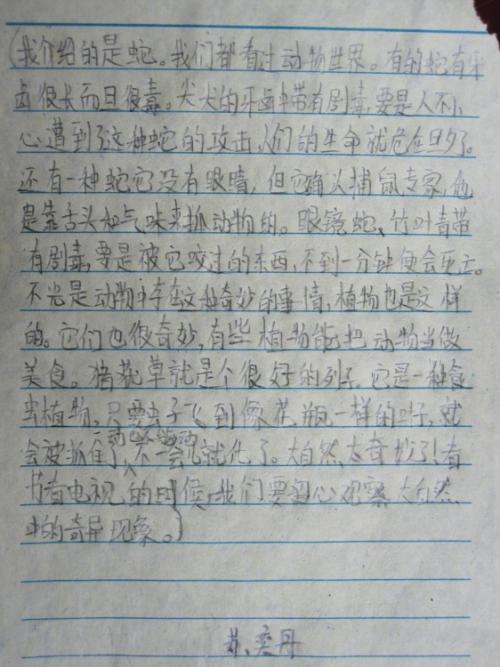 我介绍的是蛇。我们都看过动物世界。有的蛇有牙
齿很长而且很毒。尖尖的牙齿中带有剧毒,要是人不小
心遭到了这种蛇的攻击,人们的生命就危在旦夕了。
还有一种蛇它没有眼睛,但它确认捕鼠专家,他
是靠舌头和气味来抓动物的。眼镜蛇、竹叶青带
有剧毒,要是被它咬过的东西,不到一分钟便会死亡。
不光是动物中存在这种奇妙的事情,植物也是这样
的。它们也很奇妙,有些植物能把动物当做
美食。猪笼草就是个很好的列子,它是一种食
虫植物,只要虫子飞到像花瓶一样的叶子,就
会被抓住了,不一会儿就化了。大自然太奇妙了
书看电视的时候,我们要留心观察大自然
中的奇异现象。
苏奕丹